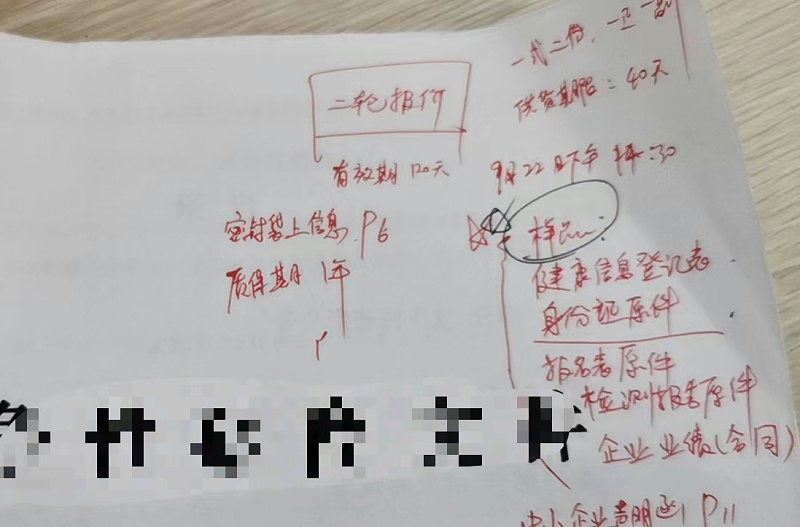 一式二份、一正一副
供货期限：40天
二轮报价
有效期 120天
9月22日下午 14:30
密封袋上信息 P6
样品：
质保期 1年
健康信息登记表
身份证原件
报名表原件
检测报告原件
企业业绩(合同)
中小企业声明函 P11